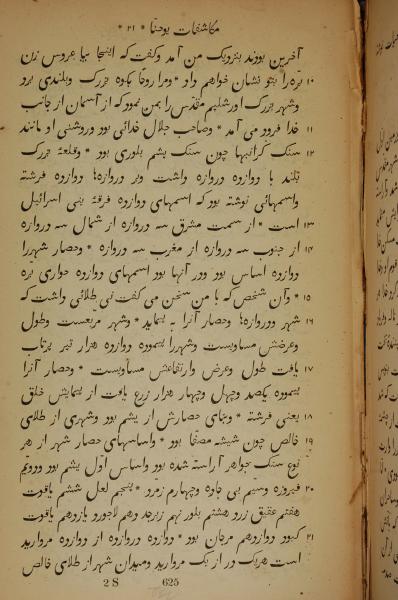 مکاشفات یوحنّا * ۲۱ *
آخرین بودند بنزدیک من آمد وگفت که اینجا بیا عروس زن
۱۰ برّه را بتو نشان خواهم داد * ومرا روحًا بکوه بزرک وبلندی برد
وشهر بزرک اورشلیم مقدّس را بمن نمود که از آسمان از جانب
۱۱ خدا فرود می آمد * وصاحب جلال خدائی بود وروشنی او مانند
۱۲ سنک گرانبها چون سنک یشم بلوری بود * وقلعهٔ بزرک
بلند با دوازده دروازه داشت وبر دروازه‌ها دوازده فرشته
واسمهائی نوشته بود که اسمهای دوازده فرقهٔ بنی اسرائیل
۱۳ است * از سمت مشرق سه دروازه از شمال سه دروازه
۱۴ از جنوب سه دروازه از مغرب سه دروازه * وحصار شهررا
دوازده اساس بود ودر آنها بود اسمهای دوازده حواری برّه
۱۵ * وآن شخص که با من سخن می گفت نی طلائی داشت که
۱۶ شهر ودروازه‌ها وحصار آنرا به پیماید * وشهر مربّعست وطول
وعرضش مساویست وشهررا پیموده دوازده هزار تیر پرتاب
۱۷ یافت طول وعرض وارتفاعش مساویست * وحصار آنرا
پیموده یکصد وچهل وچهار هزار زرع یافت از پیمایش خلق
۱۸ یعنی فرشته * وبنای حصارش از یشم بود وشهری از طلای
۱۹ خالص چون شیشه مصفّا بود * واساسهای حصار شهر از هر
نوع سنک جواهر آراسته شده بود واساس اوّل یشم بود ودویّم
۲۰ فیروزه وسیّم بی جاده وچهارم زمرّد * پنجم لعل ششم یاقوت
هفتم عقیق زرد هشتم بلور نهم زبرجد ودهم لاجورد یازدهم یاقوت
۲۱ کبود دوازدهم مرجان بود * ودوازده دروازه از دوازده مروارید
است هریک در از یک مروارید ومیدان شهر از طلای خالص
2 S 625